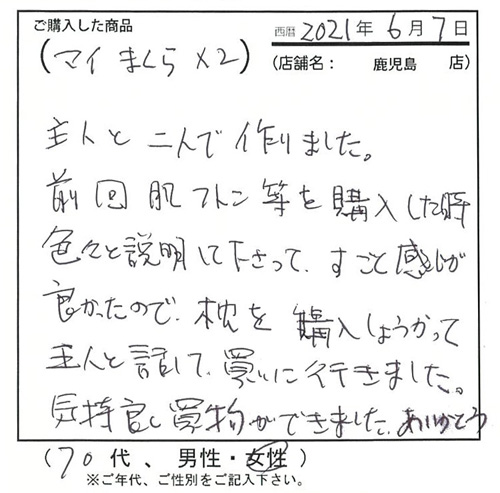 ご購入した商品
西暦 2021年 6月 7日
(マイまくら×2)
(店舗名: 鹿児島 店)
主人と二人で作りました。
前回肌フトン等を購入した時
色々と説明して下さって、すごと感じが
良かったので、枕を購入しょうかって
主人と話して、買いに行きました。
気持良く買物ができました、ありがとう
(70代、男性・女性)
※ご年代、ご性別をご記入下さい。